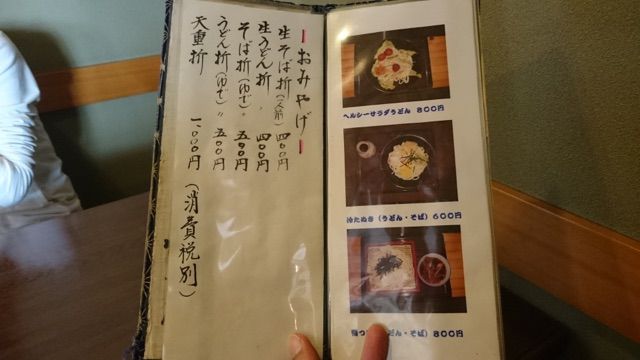 おみやげ
生そば折(一人前) 四〇〇円
生うどん折 〃 四〇〇円
そば折(ゆで) 〃 五〇〇円
うどん折(ゆで) 〃 五〇〇円
天重折 一、〇〇〇円
(消費税別)
ヘルシーサラダうどん 800円
冷たぬき (うどん・そば) 600円
うどん・そば) 800円